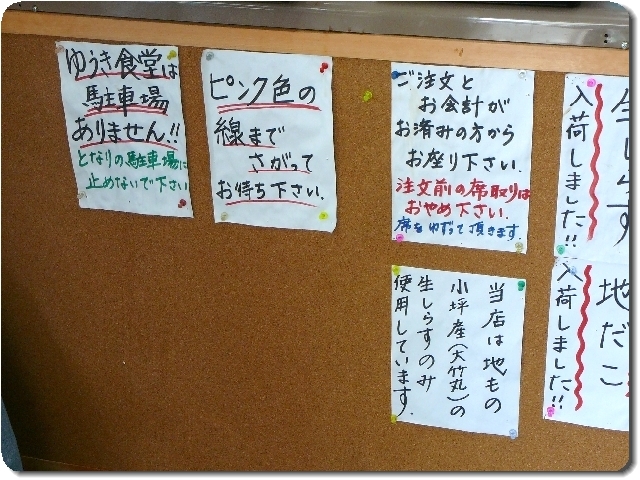 ゆうき食堂は
駐車場
ありません!!
となりの駐車場に
止めないで下さい
ピンク色の
線まで
さがって
お待ち下さい.
ご注文と
お会計が
お済みの方から
お座り下さい.
注文前の席取りは
おやめ下さい.
席をゆずって頂きます.
生しらす
入荷しました!!
当店は地もの
小坪産(大竹丸)の
生しらすのみ
使用しています.
地だこ
入荷しました!!